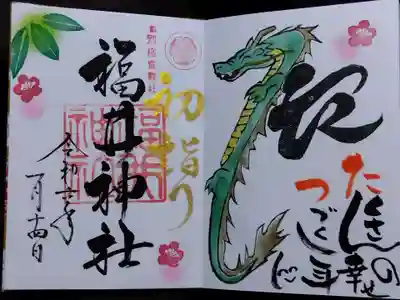 別格官幣社
初詣り
福井神社
福井神社
令和六年
一月十四日
たくさんの幸せ
つづく年に